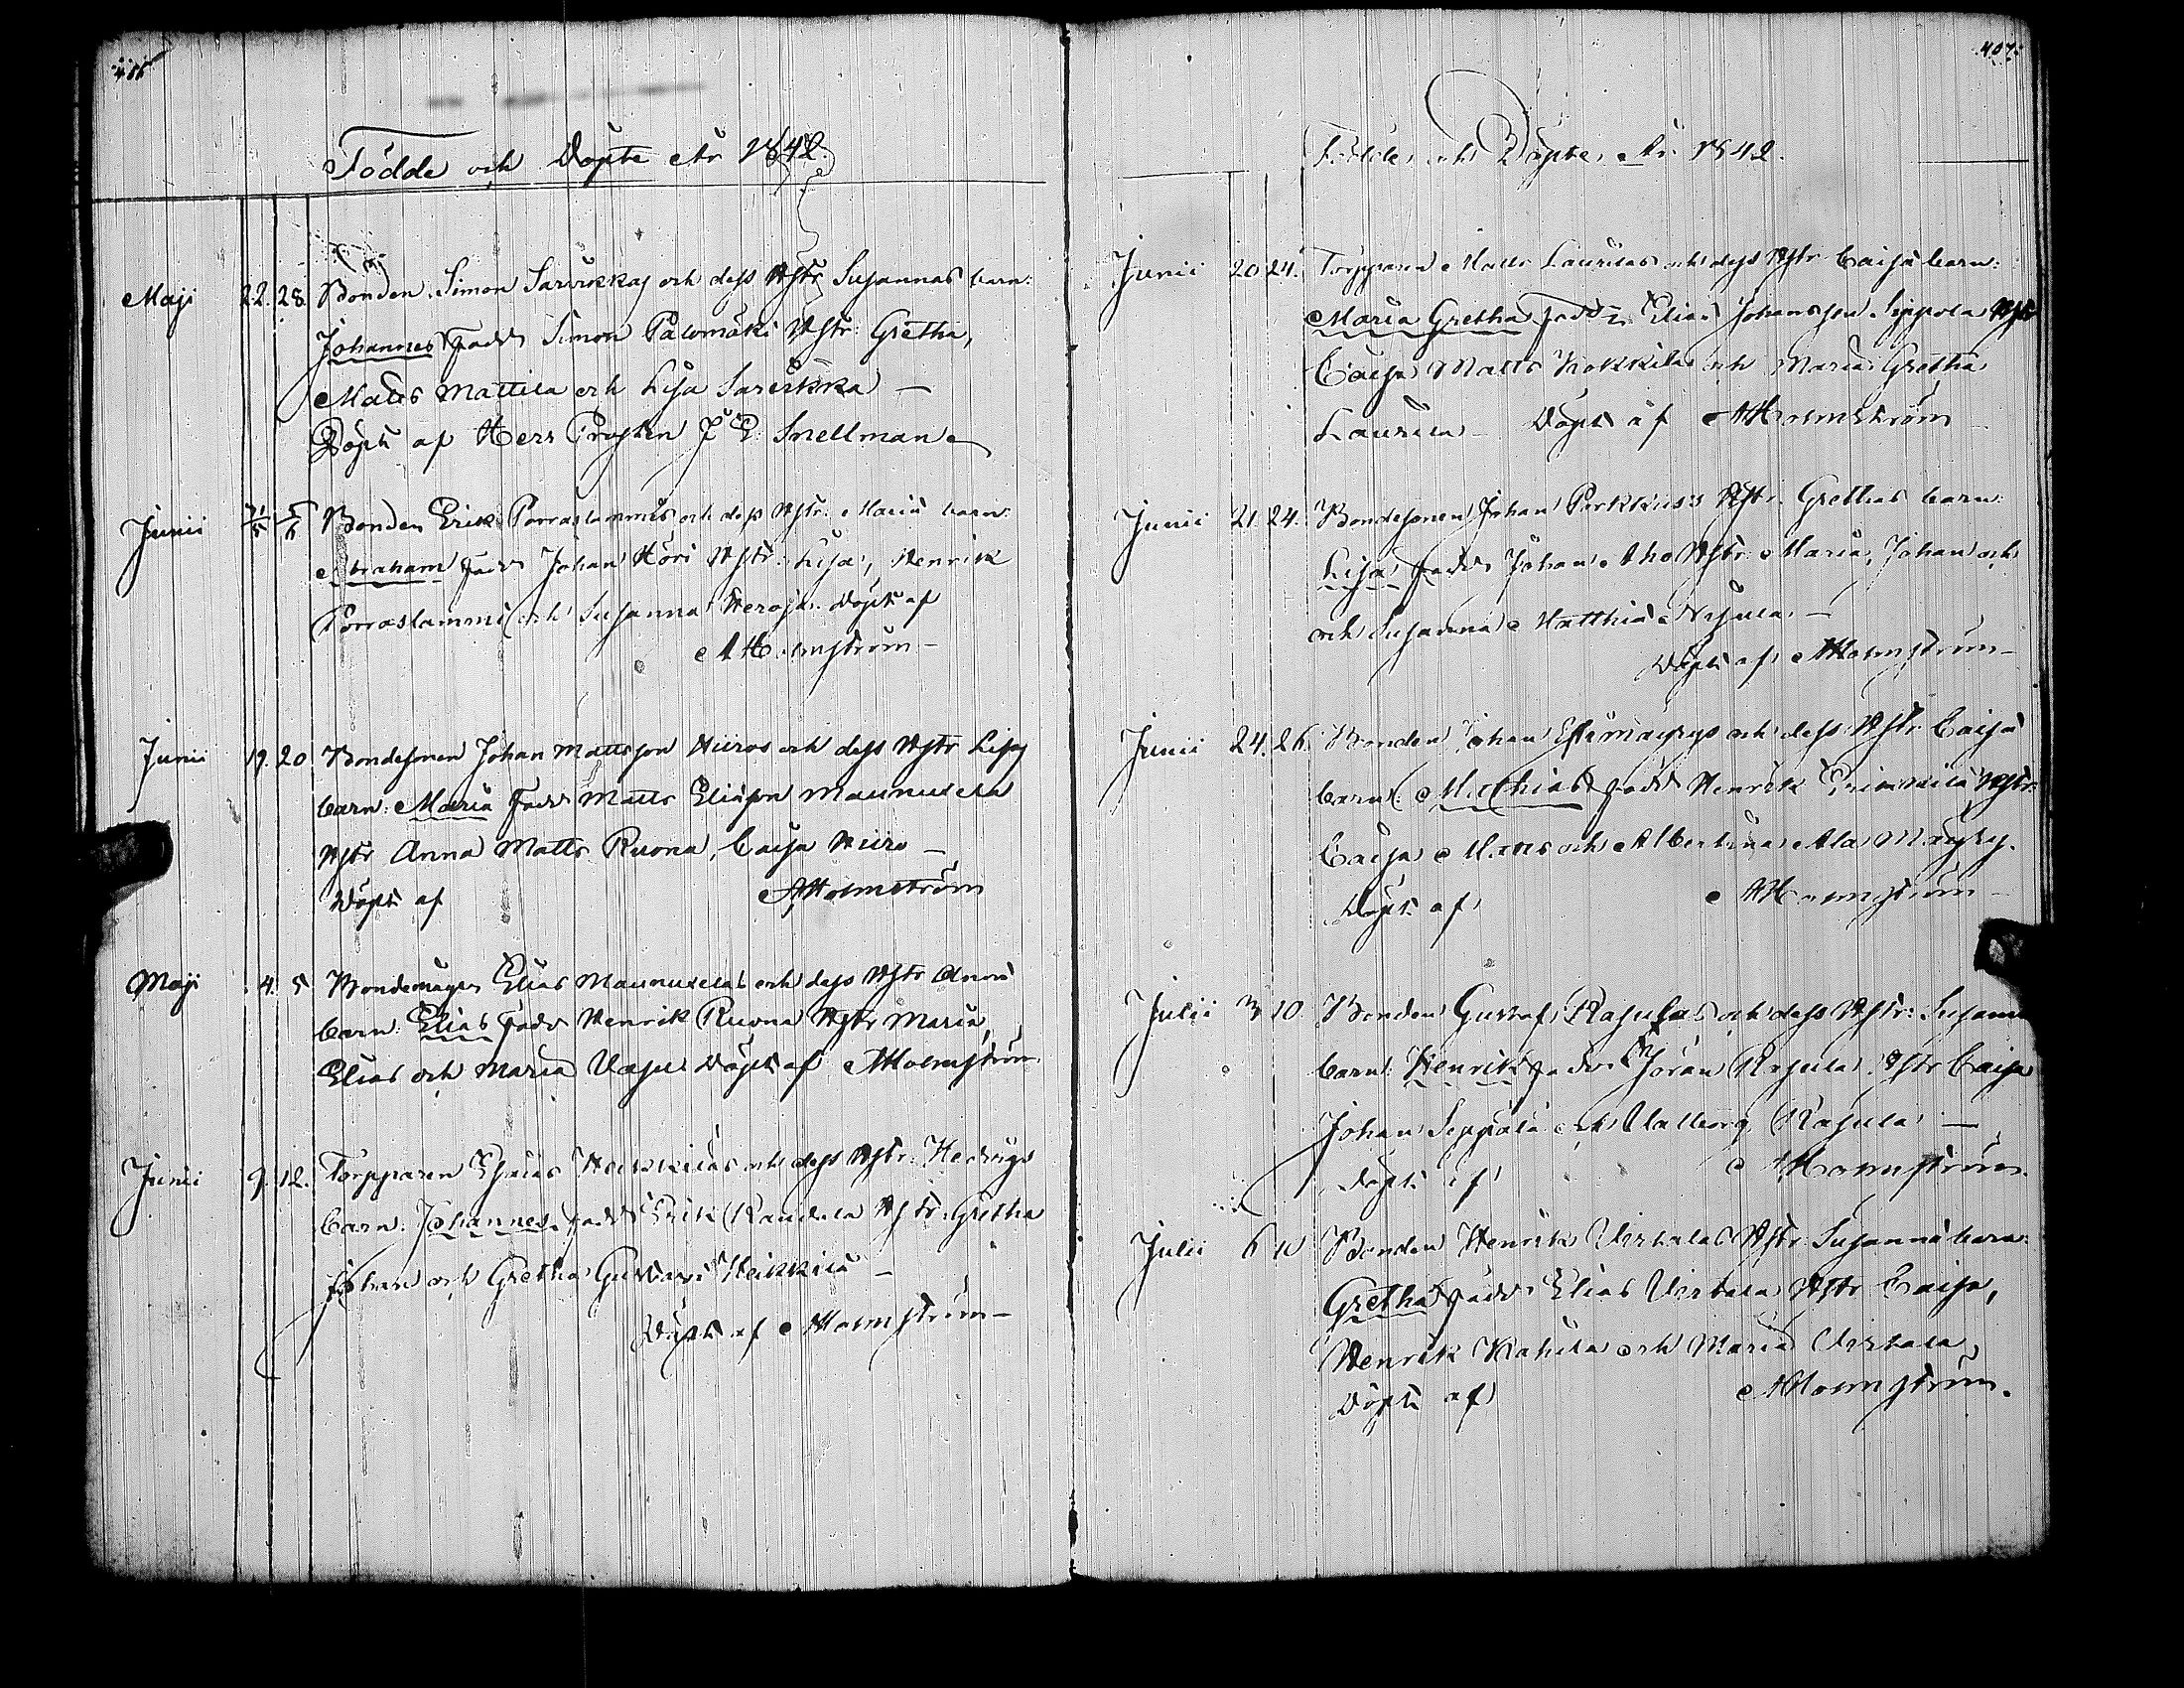 Födde och Döpte År 1842.
Maji 22. 28. Bonden Simon Sarvikkas och dess Hstr Susannas barn:
Johannes Fadd. Simon Palomäki Hstr: Gretha,
Matts Mattila och Lisa Sarvikka —
Döpt af Herr Prosten J E: Snellman
Junii 31/5 5/6 Bonden Erik Porraslammis och dess Hstr: Maria barn:
Abraham Fadd. Johan Höri Hstr: Lisa, Henrik
Porraslammi och Susanna Heroja. Döpt af
A Holmström —
Junii 19. 20 Bondesonen Johan Mattsson Hiiros och dess Hstr Lisas
barn: Maria Fadd. Matts Eliasson Maunuxela
Hstr Anna Matts Ruona, Caisa Hiiro —
Döpt af A Holmström
Maji 4. 5 Bondemågen Elias Maunuxelas och dess Hstr Annas
barn: Elias Fadd. Henrik Ruona Hstr Maria,
Elias och Maria Döpt af A Holmström
Junii 9. 12. Torpparen Heikkiläs och dess Hstr: Hedvigs
barn: Johannes. Fadd. Erik Hstr: Gretha
Johan och Gretha Gustava Heikkilä —
Döpt af A Holmström —
407.
Födde och Döpte År 1842.
Junii 20 24. Torpparen Matts Laurilas och dess Hstr Caisa barn:
Maria Gretha Fadd. Elias Johansson Seppola Hstr
Caisa Matts Kokkila och Maria Gretha
Laurila — Döpt af A Holmström
Junii 21. 24. Bondesonen Johan Hstr. Grethas barn:
Lisa Fadd. Johan Aho Hstr Maria, Johan och
och Susanna Matthias —
Döpt af A Holmström —
Junii 24. 26. Bonden Johan och dess Hstr: Caisa
barn: Mathias Fadd. Henrik Hstr:
Caisa Matts och Albertina Ala Mäyry.
Döpt af A Holmström —
Julii 3 10. Bonden Gustaf Rasulas och dess Hstr: Susanna
barn: Henrik Fadd. Jöran Rasula Hstr Caisa
Johan Seppälä och Valborg Rasula —
Döpt af A Holmström.
Julii 6 10 Bonden Henrik Virkalas Hstr Susanna barn:
Gretha Fadd. Elias Virkala Hstr Caisa,
Henrik Kahila och Maria Virkala
Döpt af A Holmström.